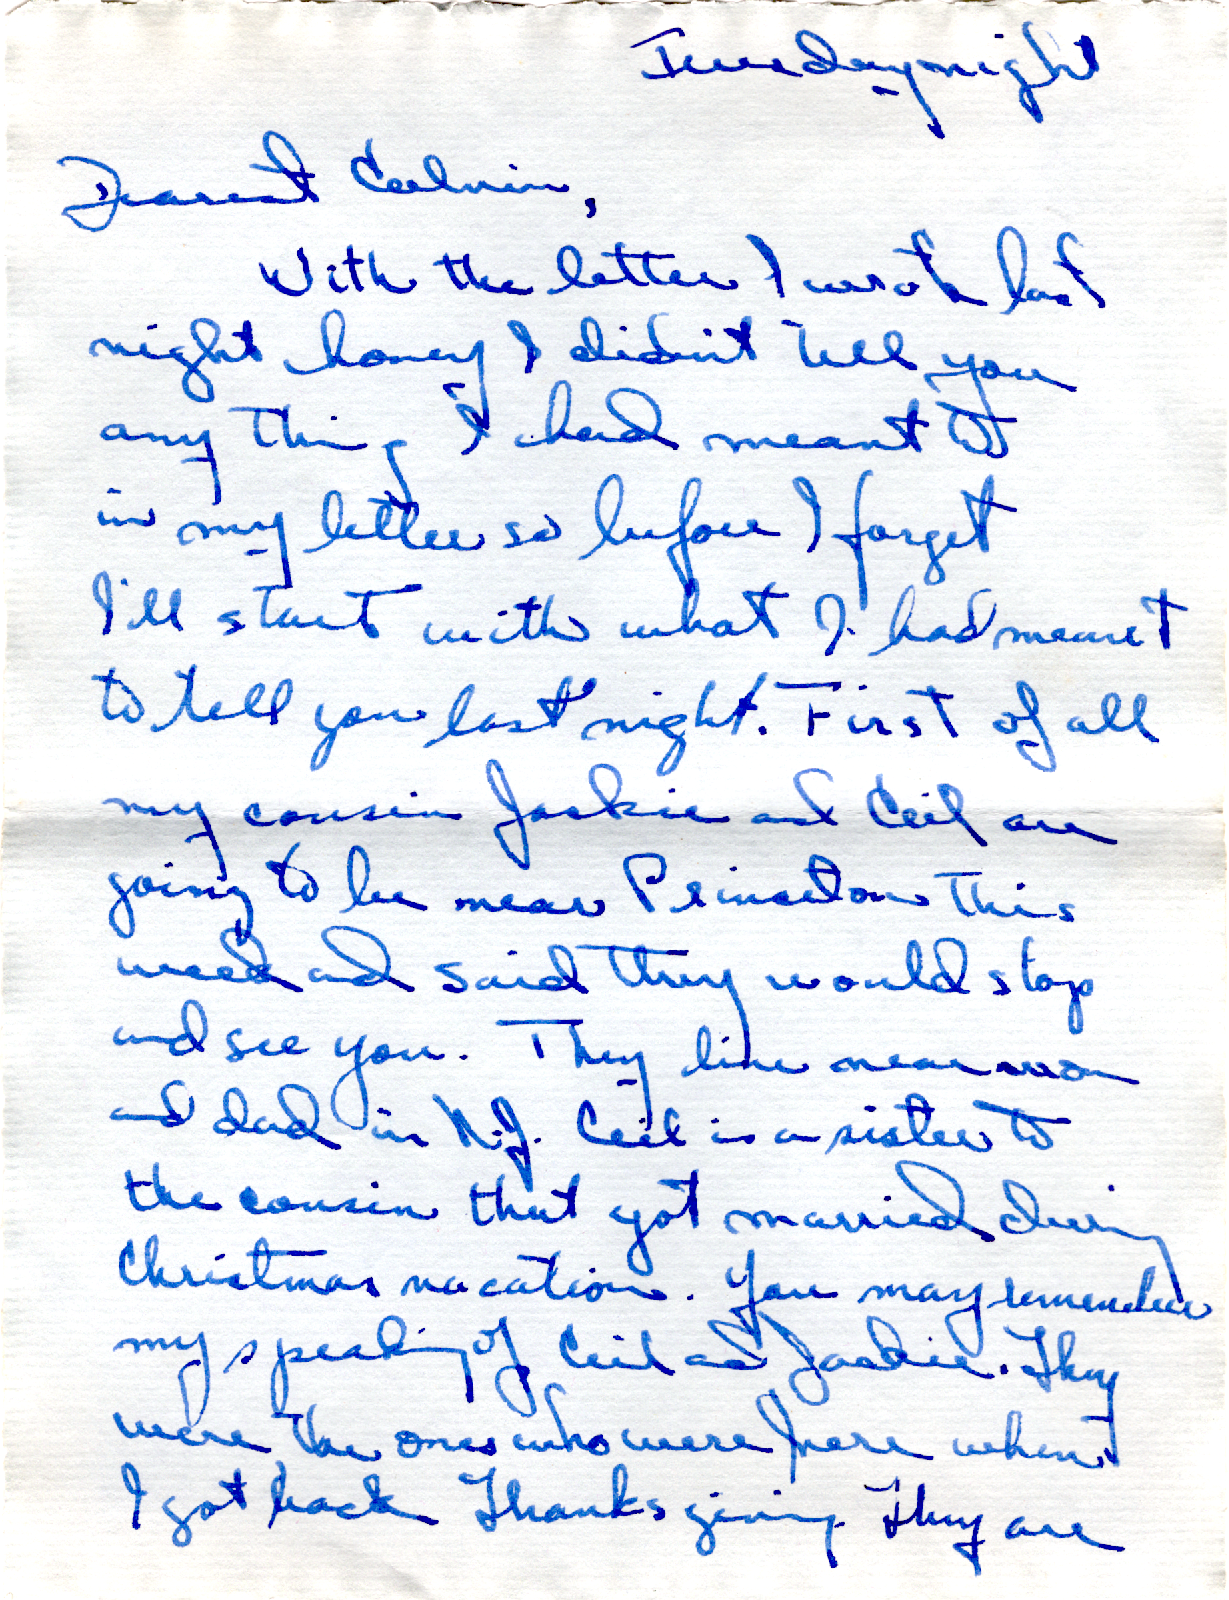 Tuesday night
Dearest Calvin,
With the letter I wrote last
night honey I didn't tell you
any thing I had meant to
in my letter so before I forget
I'll start with what I had meant
to tell you last night. First of all
my cousin Jackie and Ceil are
going to be near Princeton this
week and said they would stop
and see you. They live near mom
and dad in N.J. Ceil is a sister to
the cousin that got married during
Christmas vacation. You may remember
my speaking of Ceil and Jackie. They
were the ones who were here when
I got back Thanksgiving. They are